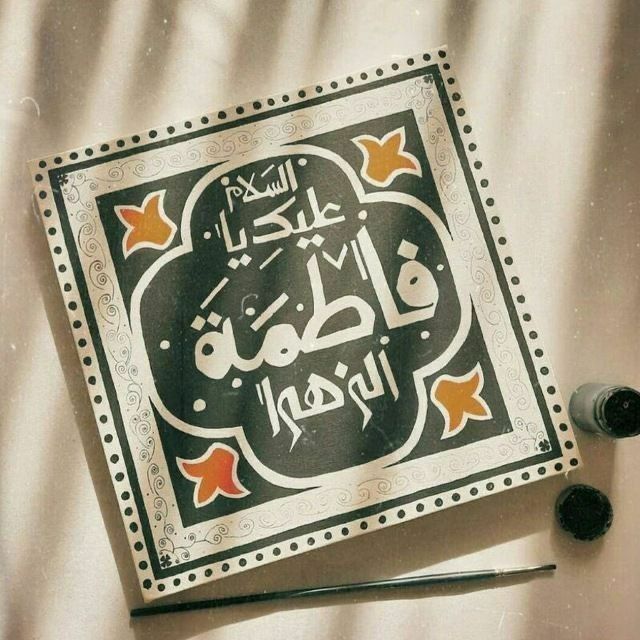 السَلام
عليكِ يا
فاطِمَة
الزهرا